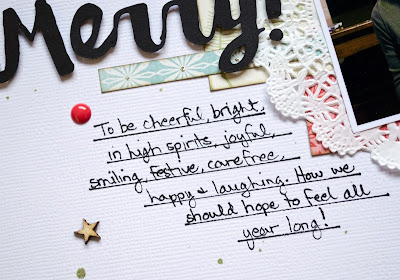 Merry!
To be cheerful, bright,
in high spirits, joyful,
smiling, festive, carefree,
happy & laughing. How we
should hope to feel all
year long!